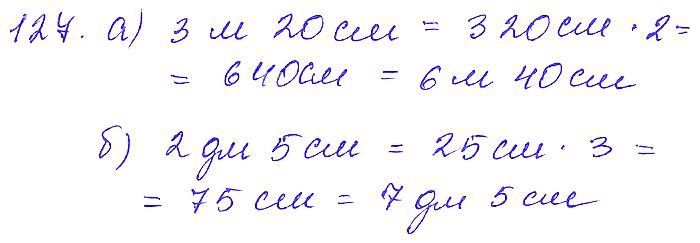 127. а) 3 м 20 см = 320 см · 2 =
= 640 см = 6 м 40 см
б) 2 дм 5 см = 25 см · 3 =
= 75 см = 7 дм 5 см